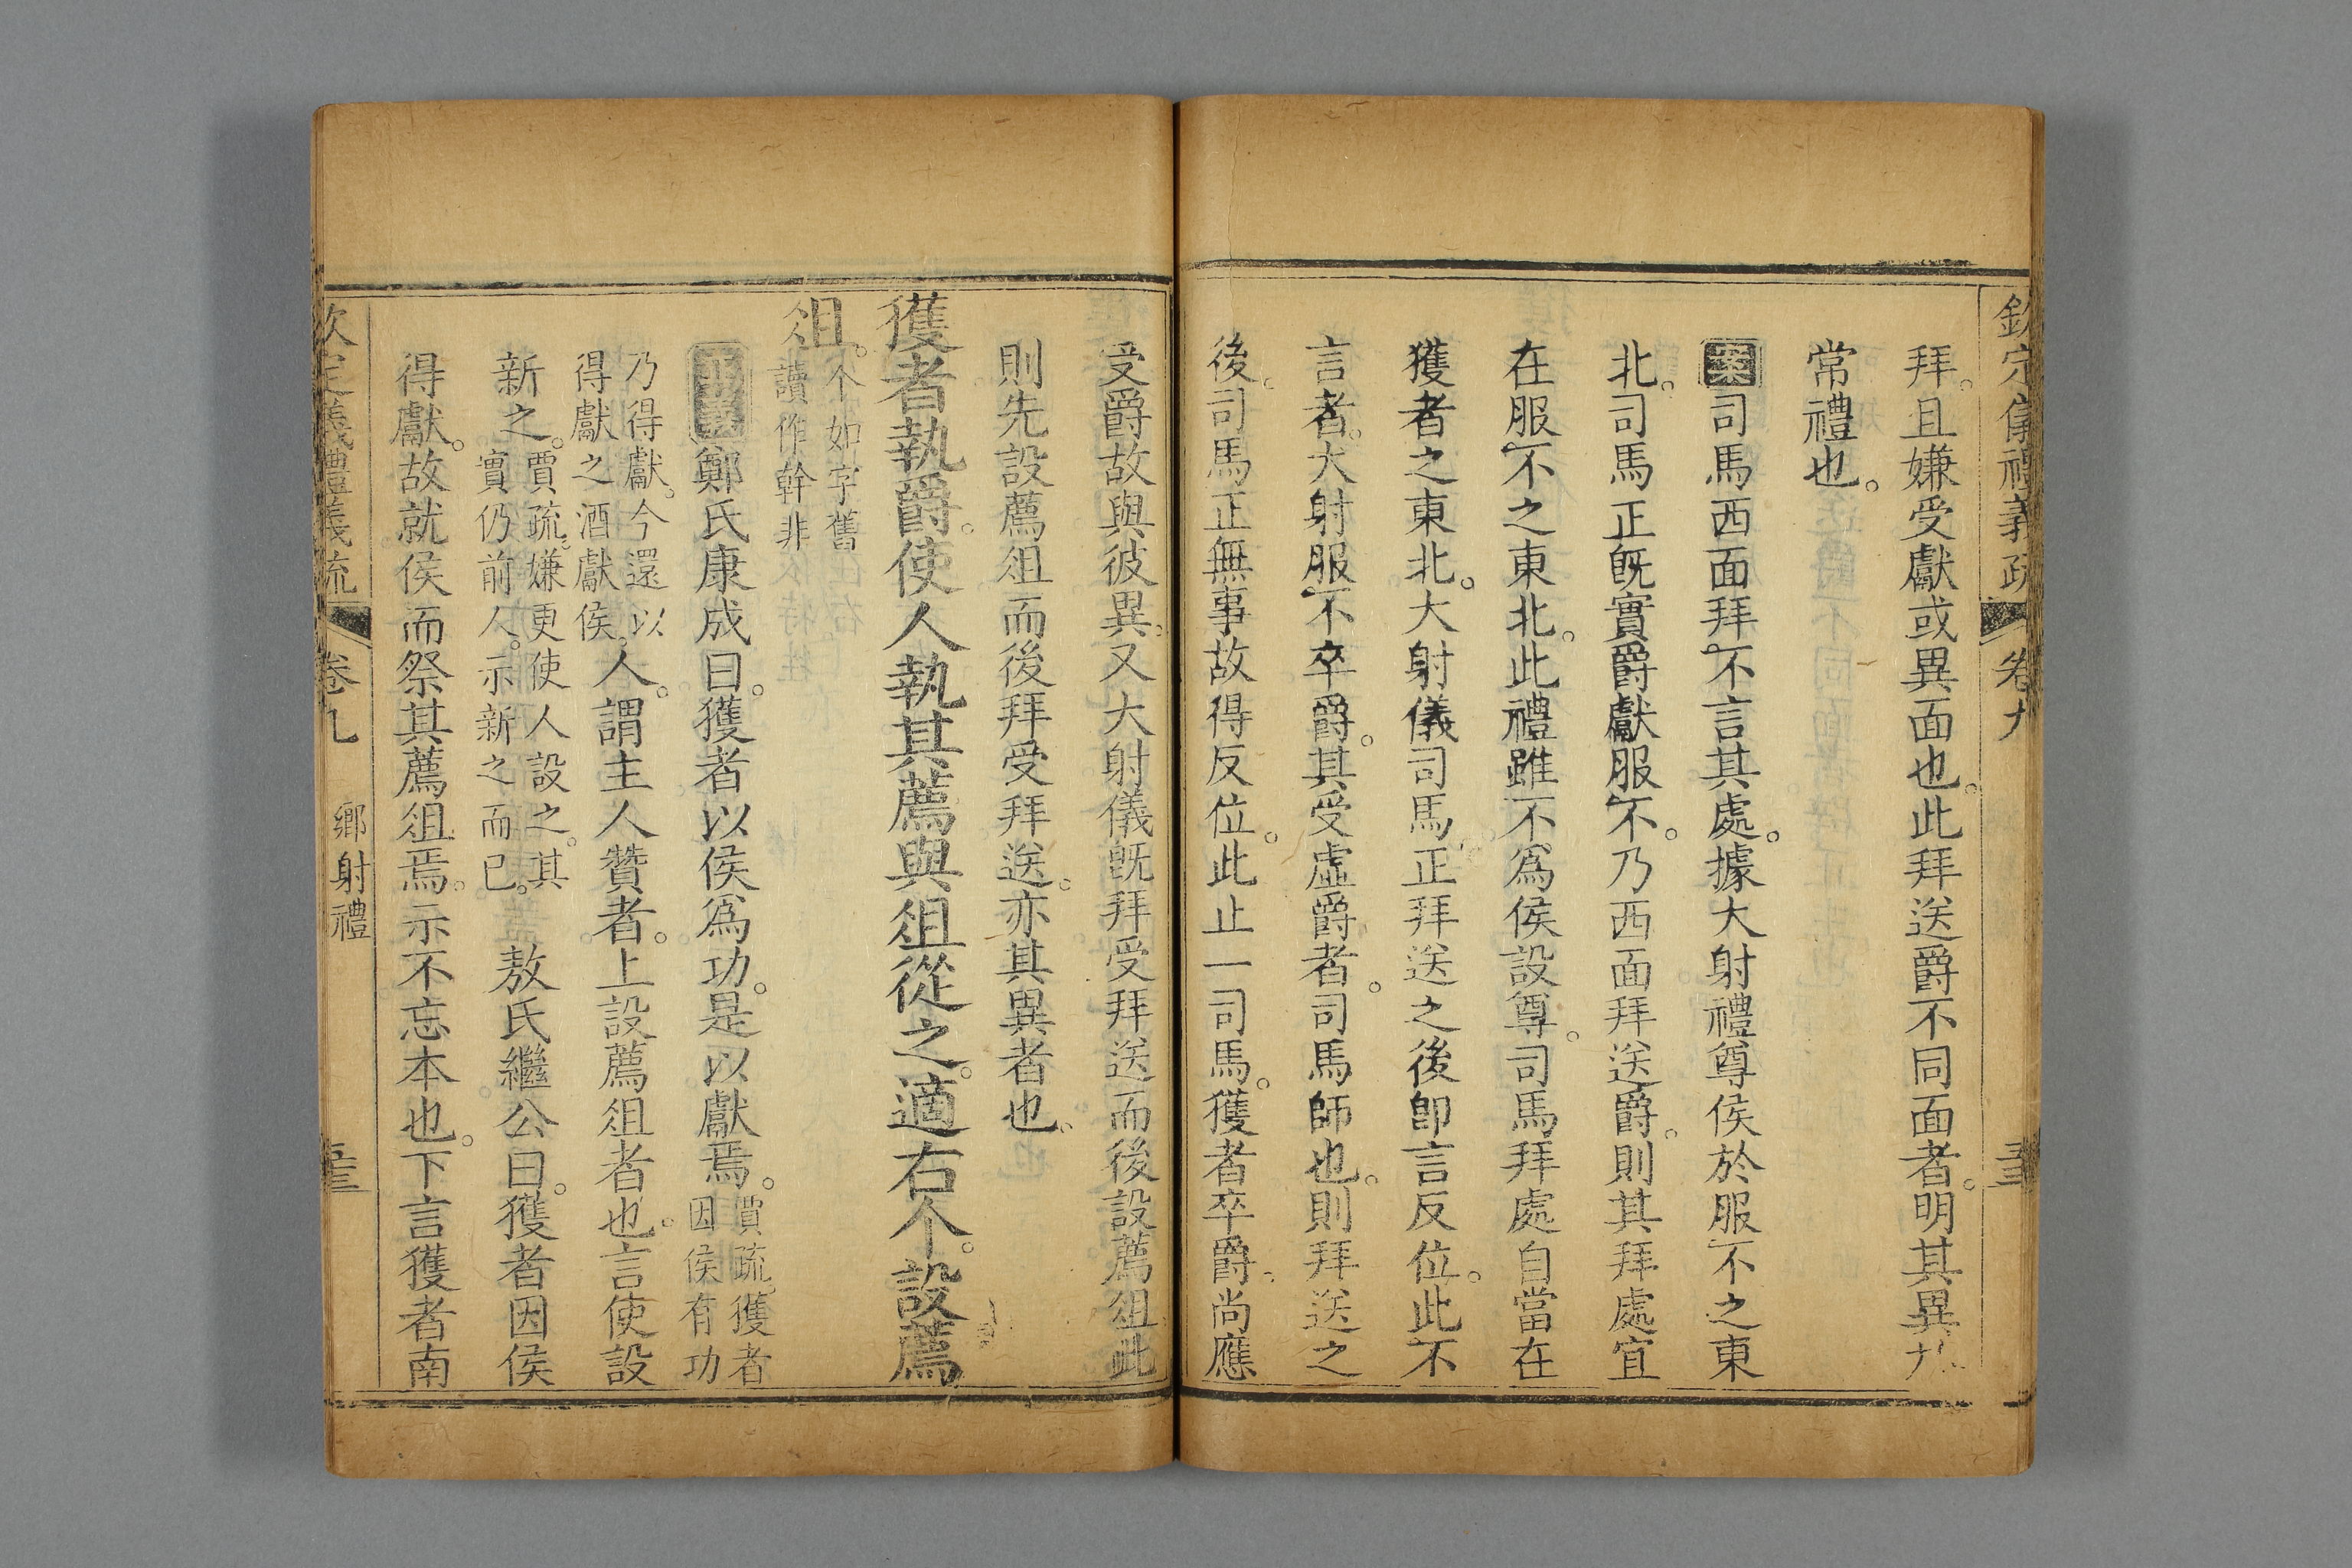 欽定儀禮義疏 卷九
拜。且嫌受獻或異面也。此拜送爵不同面者。明其異
常禮也。
案司馬西面拜。不言其處。據大射禮尊侯於服不之東
北。司馬正既實爵獻服不。乃西面拜送爵。則其拜處宜
在服不之東北。此禮雖不爲侯設尊。司馬拜處自當在
獲者之東北。大射儀司馬正拜送之後卽言反位。此不
言者。大射服不卒爵。其受虛爵者。司馬師也。則拜送之
後。司馬正無事故得反位。此止一司馬。獲者卒爵。尚應
受爵故與彼異。又大射儀旣拜受拜送而後設薦俎此
則先設薦俎而後拜受拜送。亦其異者也。
獲者執爵。使人執其薦與俎從之。適右个。設薦
俎。个如字舊
讀作幹非
正義鄭氏康成曰。獲者以侯爲功。是以獻焉。賈疏。獲者
因侯有功
乃得獻。今還以
得獻之酒獻侯。人。謂主人贊者。上設薦俎者也。言使設
新之。賈疏。嫌更使人設之。其
實仍前人。示新之而已。敖氏繼公曰。獲者因侯
得獻。故就侯而祭其薦俎焉。示不忘本也。下言獲者南
欽定儀禮義疏 卷九 鄉射禮